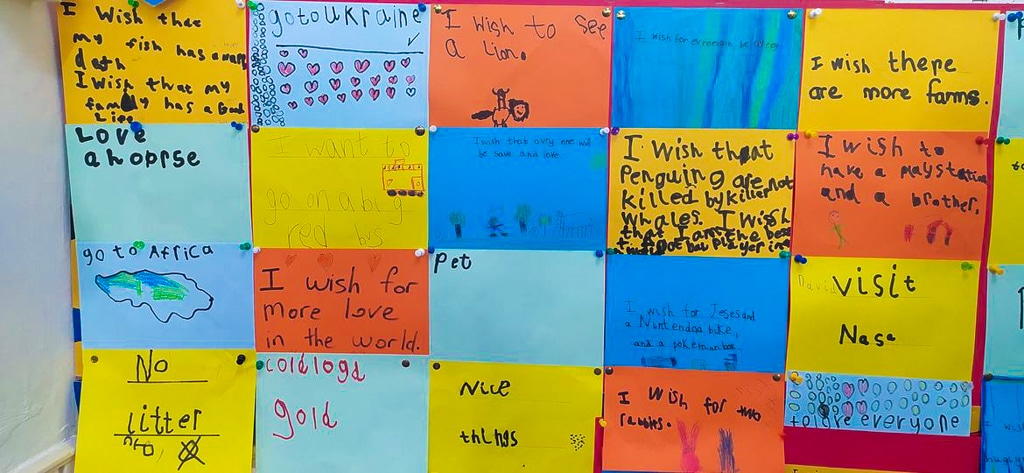 I Wish that
my fish has a
dath
I Wish that my
family has a Good
Life
go to Ukraine
I wish to see
a lion.
I wish for everyone
I wish there
are more farms.
Love
ahoprse
I want to
go on a big
red bus
I wish that every one will
be save and love.
I Wish that
Penguing are not
killed by killer
whales. I Wish
that I am the best
player in
I wish to
have a playstation
and a brother.
go to Africa
I wish for
more love
in the world.
Pet
I wish for
a Nintendo a bike,
and a
David
visit
Nasa
No
litter
gold
Nice
things
I wish for two
everyone